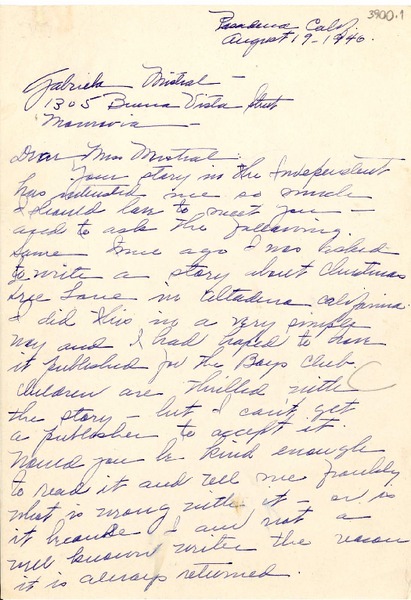 3900.1
Pasadena Calif.
August 19-1946.
Gabriela Mistral -
1305 Buena Vista Street
Monrovia -
Dear Miss Mistral:
Your story in the Independent
has interested me so much
I should love to meet you -
and to ask the following.
Some time ago I was asked
to write a story about Christmas
tree Lane in Altadena California.
I did this in a very simple
way and I had hoped to have
it published for the Boys Club -
Children are thrilled with
the story - but I can't get
a publisher to accept it.
Would you be kind enough
to read it and tell me frankly
what is wrong with it - or is
it because I am not a
well known writer the reason
it is always returned.